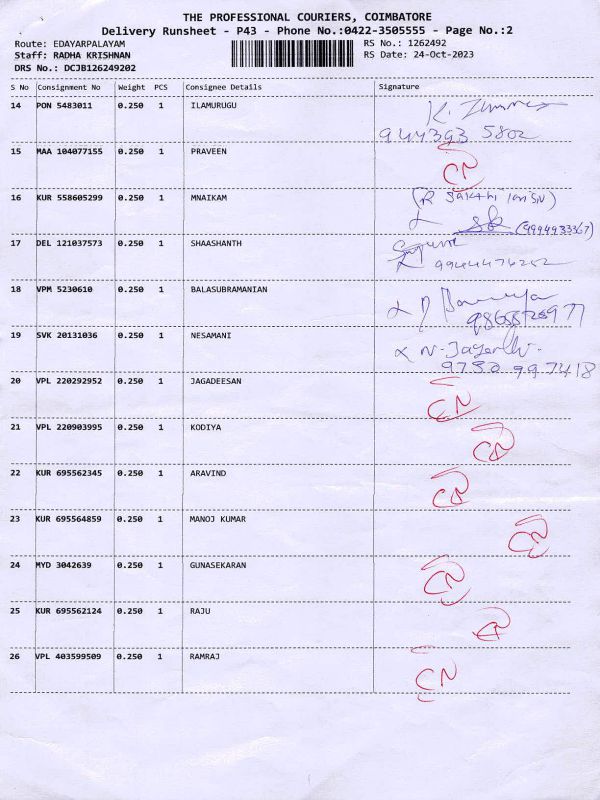 THE PROFESSIONAL COURIERS, COIMBATORE
Delivery Runsheet - P43 - Phone No.:0422-3505555 - Page No.:2
Route: EDAYARPALAYAM RS No.: 1262492
Staff: RADHA KRISHNAN RS Date: 24-Oct-2023
DRS No.: DCJB126249202
S No Consignment No Weight PCS Consignee Details Signature
14 PON 5483011 0.250 1 ILAMURUGU K.
944393 5802
15 MAA 104077155 0.250 1 PRAVEEN CN
16 KUR 558605299 0.250 1 MNAIKAM
(9994933367)
17 DEL 121037573 0.250 1 SHAASHANTH
9944476252
18 VPM 5230610 0.250 1 BALASUBRAMANIAN
19 SVK 20131036 0.250 1 NESAMANI N. Jayanthi
9750 997418
20 VPL 220292952 0.250 1 JAGADEESAN CN
21 VPL 220903995 0.250 1 KODIYA CN
22 KUR 695562345 0.250 1 ARAVIND CN
23 KUR 695564859 0.250 1 MANOJ KUMAR CN
24 MYD 3042639 0.250 1 GUNASEKARAN CN
25 KUR 695562124 0.250 1 RAJU CN
26 VPL 403599509 0.250 1 RAMRAJ CN